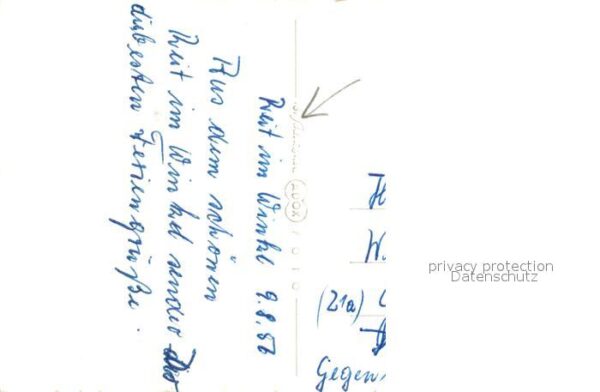 Reit im Winkl 9.8.56
Aus dem schönen
Reit im Winkel sendet Dir
die besten Feriengrüße.
W.
(21a)
Gegen
privacy protection
Datenschutz